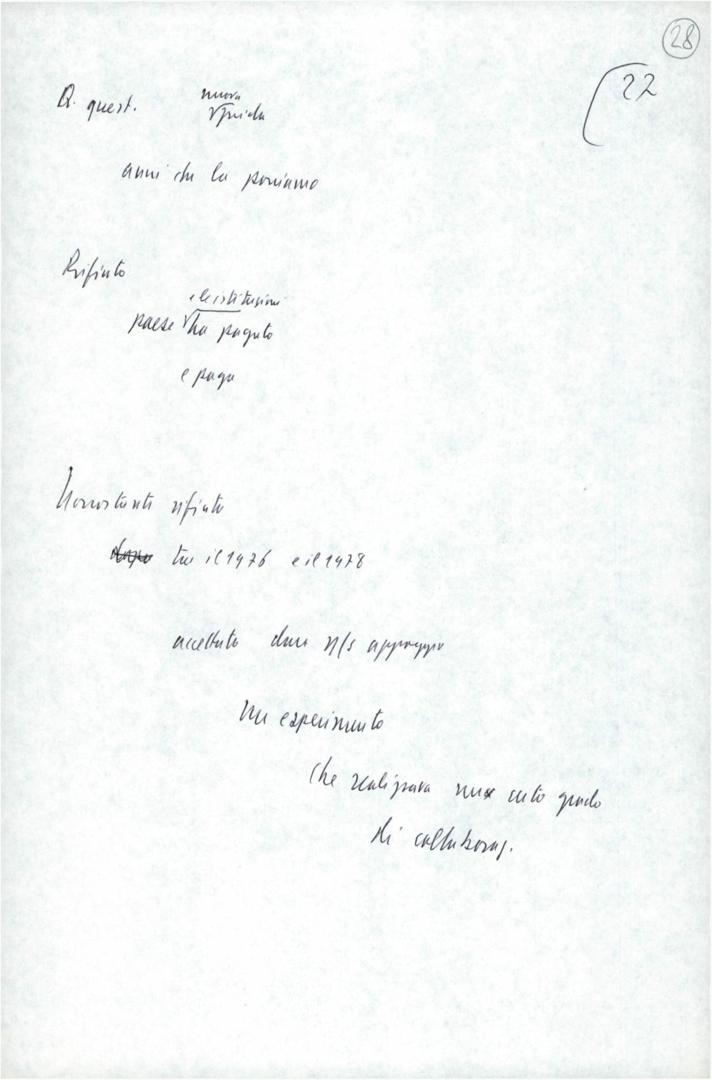 28
22
Q. quest. nuova guida
anni che la poniamo
Rifiuto
e le istituzioni
paese ha pagato
e paga
Nonostante rifiuto
tra il 1976 e il 1978
accettato dare n/s appoggio
un esperimento
che realizzava un certo grado
di collaboraz.